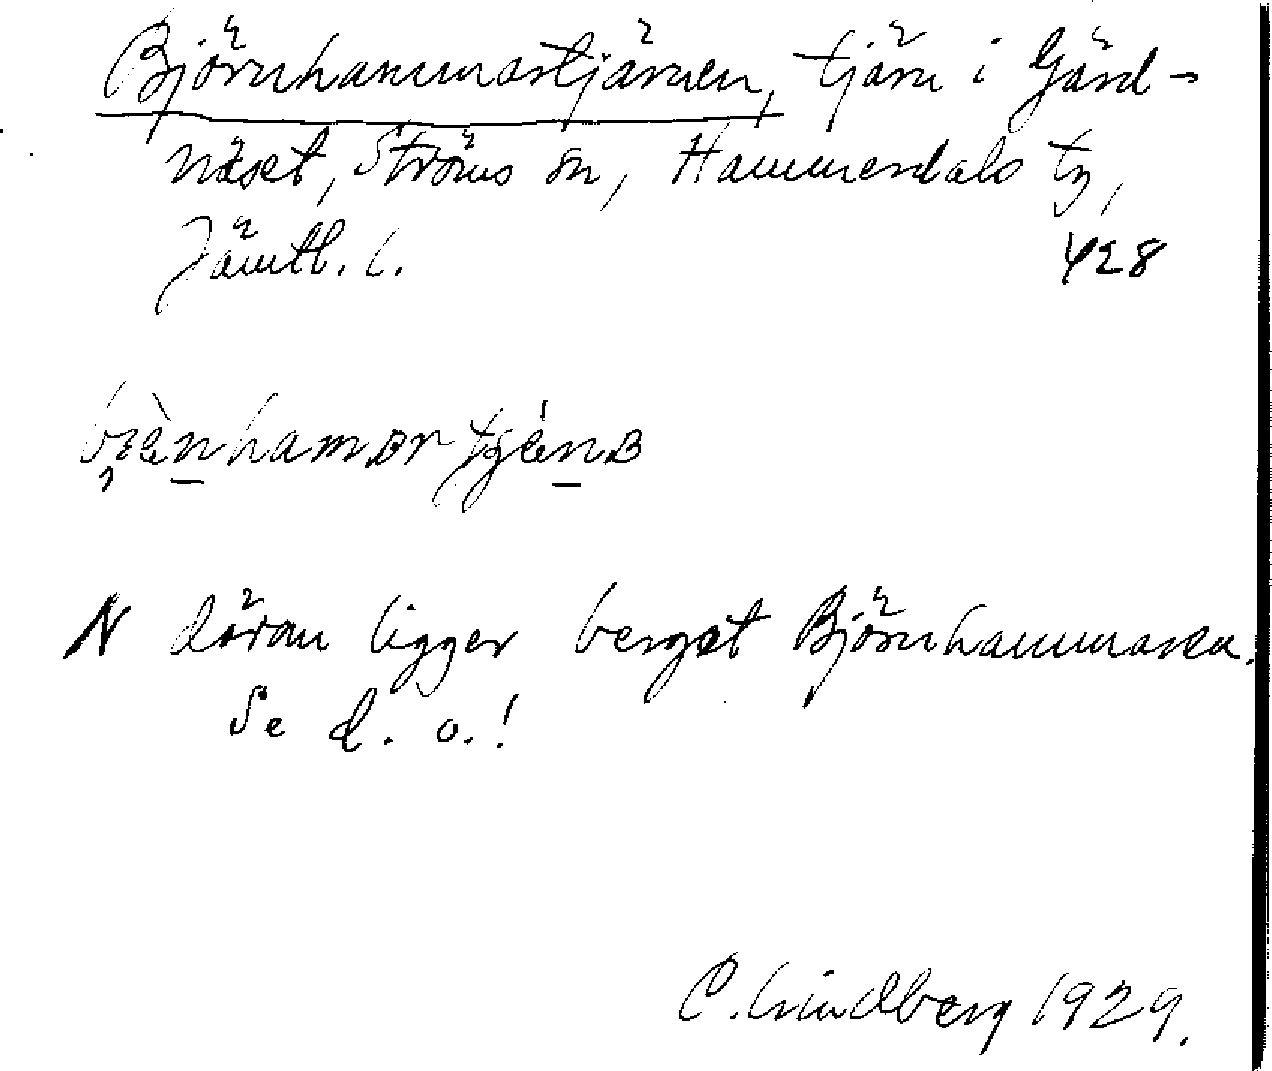 Björnhammartjärnen, tjärn i Gärd-
näset, Ströms sn, Hammerdals tg,
Jämtl. l.
428
N däran ligger berget Björnhammaren.
Se d. o.!
C. Lindberg 1929.